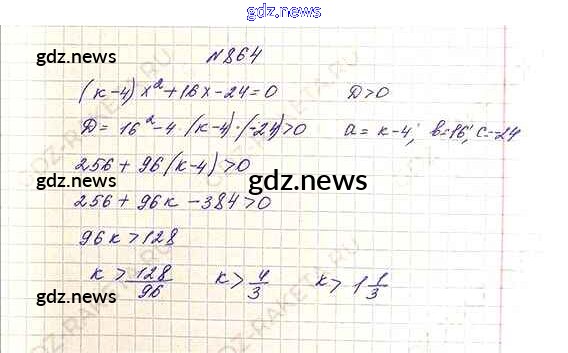 gdz.news
№864
gdz.news
gdz.news
(к-4)x²+16x-24=0 D>0
D=16²-4·(к-4)·(-24)>0 a=к-4; b=16; c=-24
256+96(к-4)>0
gdz.news
gdz.news
256+96к-384>0
96к>128
к>128/96 к>4/3 к>1 1/3
gdz.news
gdz.news